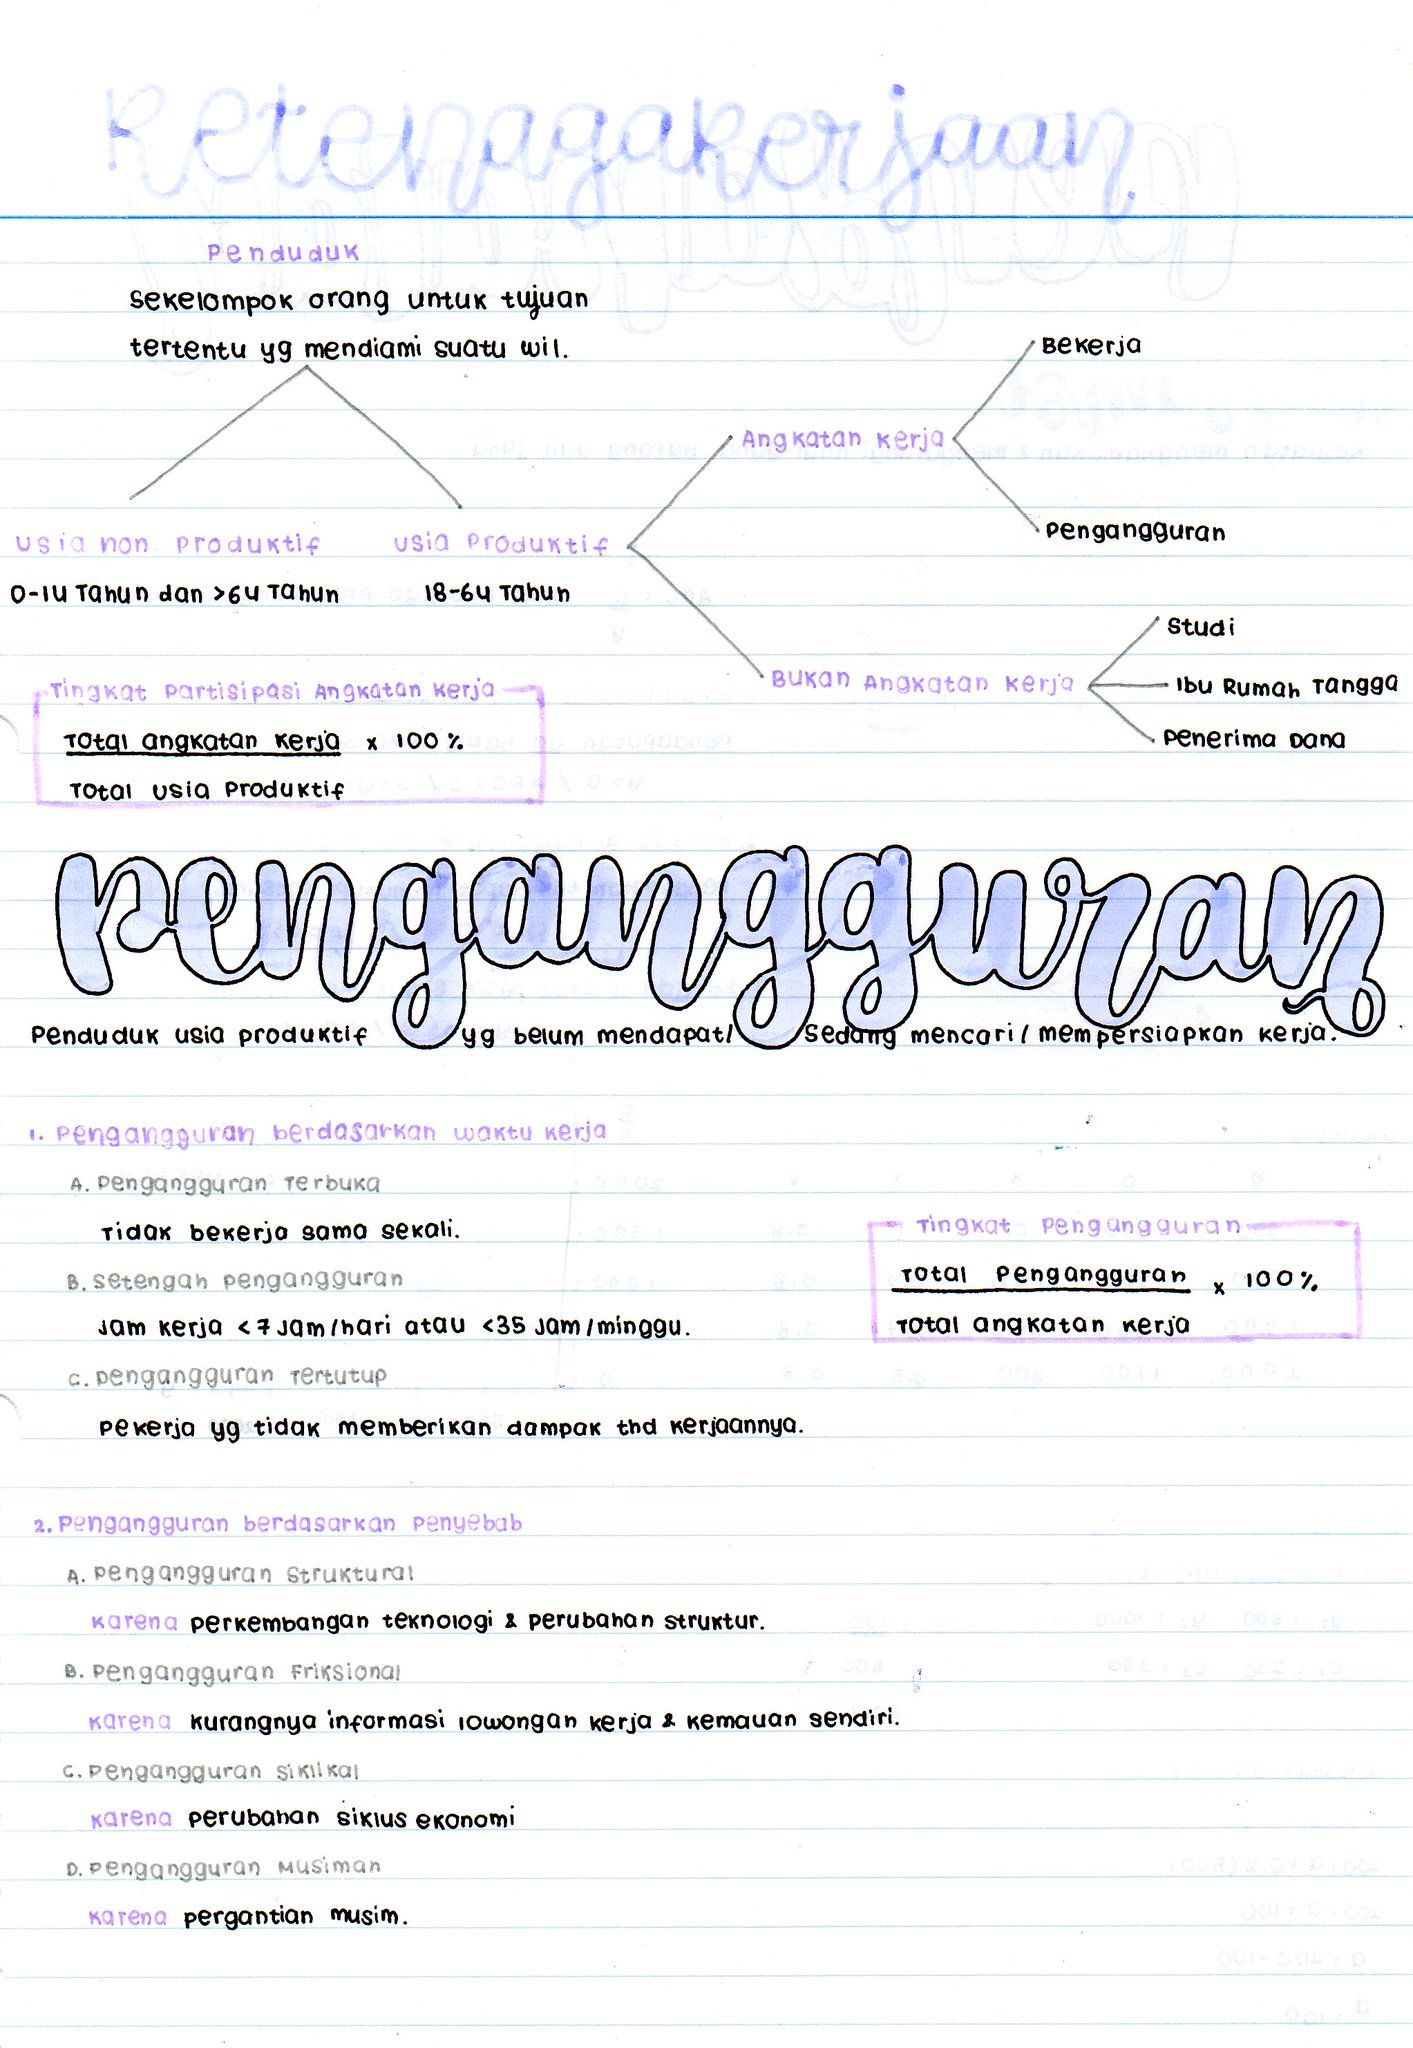 Ketenagakerjaan
Penduduk
Sekelompok orang untuk tujuan
tertentu yg mendiami suatu wil.
Usia non produktif
0-14 Tahun dan >64 Tahun
Usia produktif
18-64 Tahun
Angkatan kerja
Bekerja
Pengangguran
Bukan Angkatan kerja
Studi
Ibu Rumah Tangga
Penerima Dana
Tingkat Partisipasi Angkatan kerja
Total angkatan kerja x 100%
Total usia produktif
Pengangguran
Penduduk usia produktif yg belum mendapat/ sedang mencari/ mempersiapkan kerja.
1. Pengangguran berdasarkan waktu kerja
A. Pengangguran Terbuka
Tidak bekerja sama sekali.
B. Setengah pengangguran
Jam kerja <7 Jam/hari atau <35 Jam/minggu.
C. Pengangguran Tertutup
Pekerja yg tidak memberikan dampak thd kerjaannya.
Tingkat Pengangguran
Total Pengangguran x 100%
Total angkatan kerja
2. Pengangguran berdasarkan Penyebab
A. Pengangguran Struktural
Karena perkembangan teknologi & perubahan struktur.
B. Pengangguran Friksional
Karena kurangnya informasi lowongan kerja & kemauan sendiri.
C. Pengangguran Siklikal
Karena perubahan siklus ekonomi
D. Pengangguran Musiman
Karena pergantian musim.